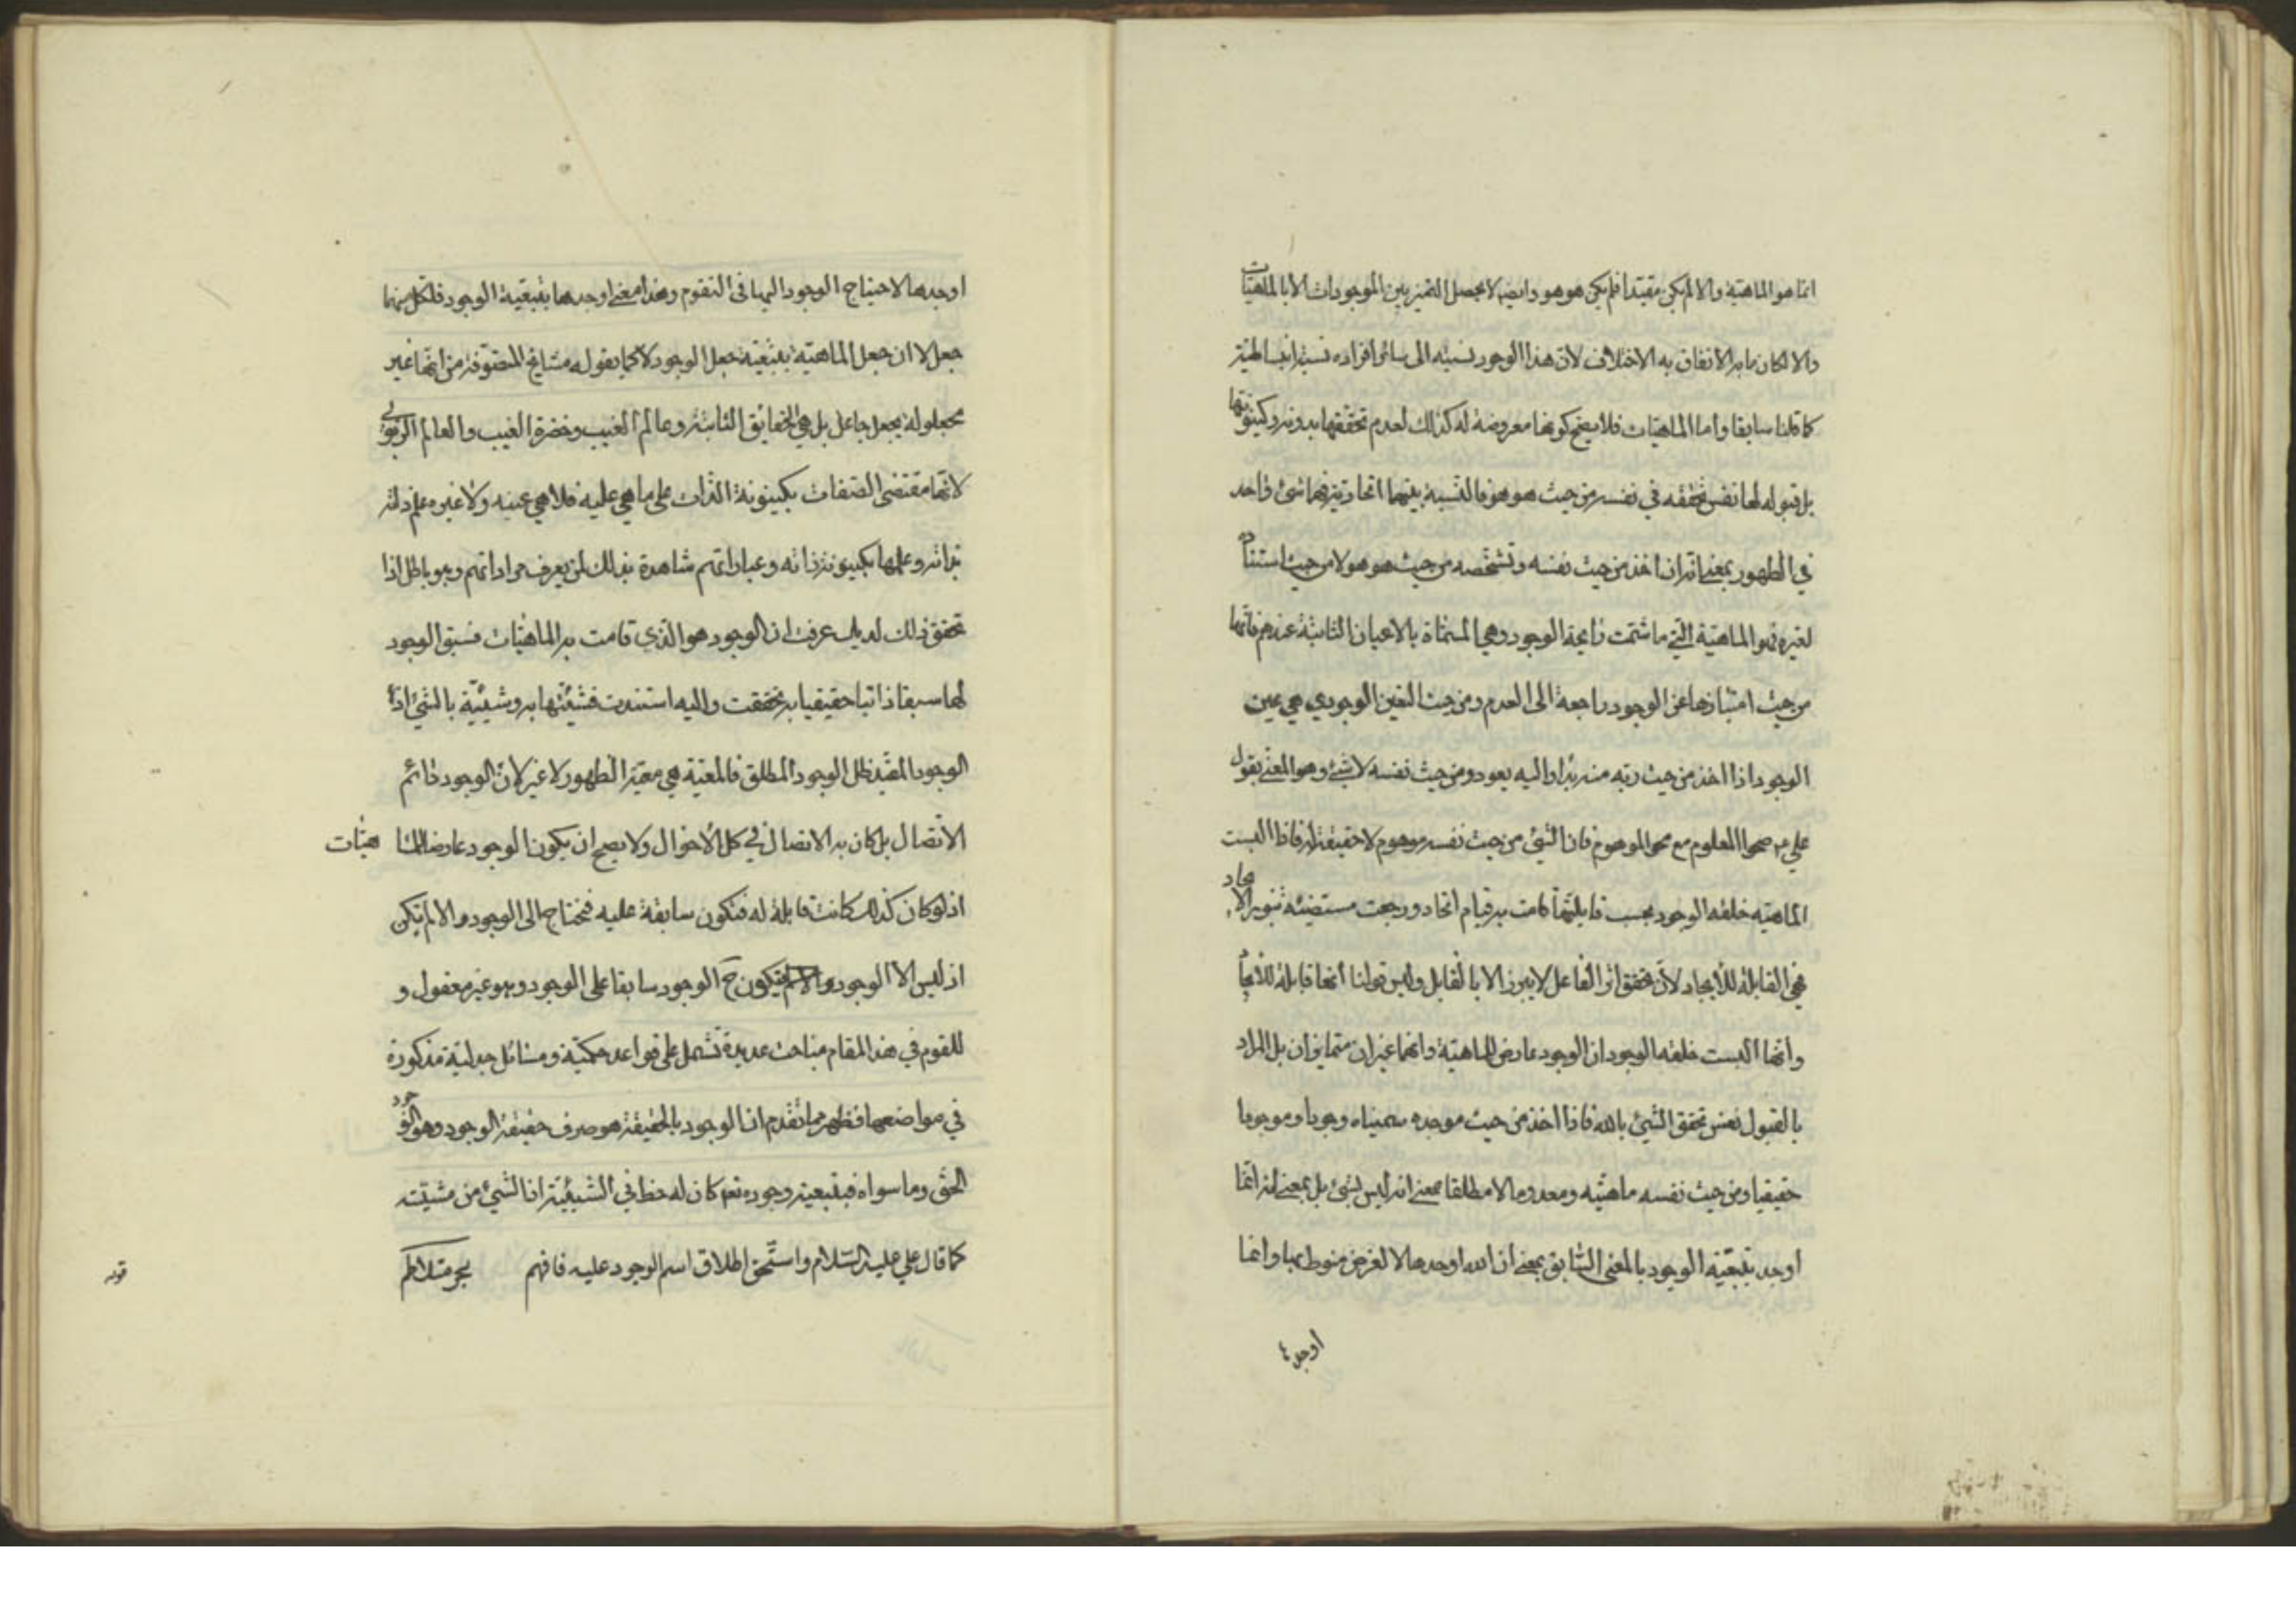 انما هو الماهية والا لم يكن مقيدا فلم يكن هو هو وايضا لا يحصل التميز بين الموجودات الا بالماهيات
والا لكان ما به الاتفاق به الاختلاف لان هذا الوجود نسبته الى سائر افراده نسبة
كما قلنا سابقا واما الماهيات فلا يصح كونها معروضة له كذلك لعدم تحققها بدونه وكينونتها
بل قبوله لها نفس تحققه في نفسه من حيث هو هو فالنسبة بينهما اتحادية فهما شئ واحد
في الظهور بمعنى انه ان اخذ من حيث نفسه وتشخصه من حيث هو هو لا من حيث استناده
لغيره فهو الماهية التي ما شمت رايحة الوجود وهي المسماة بالاعيان الثابتة عندهم فانها
من حيث امتيازها عن الوجود راجعة الى العدم ومن حيث التعين الوجودي هي عين
الوجود اذا اخذ من حيث ربه منه بدا واليه يعود ومن حيث نفسه لا شئ وهو المعنى بقول
علي ع صحو المعلوم مع محو الموهوم فان الشئ من حيث نفسه موهوم لا حقيقة له فاذا البست
الماهية خلعة الوجود بحسب قابليتها قامت به قيام اتحاد ورجعت مستضيئة بنور الايجاد
فهي القابلة للايجاد لان تحقق اثر الفاعل لا يبرز الا بالقابل وليس قولنا انها قابلة للايجاد
وانها البست خلعة الوجود ان الوجود عارض للماهية وانهما غيران متمايزان بل المراد
بالقبول نفس تحقق الشئ بالله فاذا اخذ من حيث موجده سميناه وجودا وموجودا
حقيقيا ومن حيث نفسه ماهيته ومعدوما لا مطلقا بمعنى انه ليس بشئ بل بمعنى انه انما
اوجد بتبعية الوجود بالمعنى السابق بمعنى ان الله اوجدها لا لغرض منوط بها وانما
اوجد
اوجدها لاحتياج الوجود اليها في التقوم وهذا معنى اوجدها بتبعية الوجود فلكل منهما
جعل لا ان جعل الماهية بتبعية جعل الوجود لا كما يقوله مشايخ المتصوفة من انها غير
مجعولة بجعل جاعل بل هي الحقايق الثابتة وعالم الغيب وحضرة الغيب والعالم الربوبي
لانها مقتضى الصفات بكينونة الذات على ما هي عليه فلا هي عينه ولا غيره علم ذاته
بذاته وعلمها بكينونة ذاته وعباراتهم شاهدة بذلك لمن يعرف مراداتهم وهو باطل اذا
تحقق ذلك لديك عرفت ان الوجود هو الذي قامت به الماهيات فسبق الوجود
لها سبقا ذاتيا حقيقيا به تحققت واليه استندت فشيئيتها به وشيئية بالشئ اذا
الوجود المقيد ظل الوجود المطلق فالمعية هي معية الظهور لا غير لان الوجود دائم
الاتصال بل كان به الاتصال في كل الاحوال ولا يصح ان يكون الوجود عارضا للماهيات
اذ لو كان كذلك كانت قابلة له فتكون سابقة عليه فتحتاج الى الوجود والا لم يكن
اذ ليس الا الوجود فيكون ح الوجود سابقا على الوجود وهو غير معقول و
للقوم في هذا المقام مباحث عديدة تشمل على قواعد حكمية ومسائل جدلية مذكورة
في مواضعها فظهر مما تقدم ان الوجود بالحقيقة هو صرف حقيقة الوجود وهو الوجود
الحق وما سواه فبتبعية وجوده نعم كان له حظ في الشيئية ان الشئ من مشيته
كما قال علي عليه السلام واستحق اطلاق اسم الوجود عليه فافهم بحر متلاطم
قوله